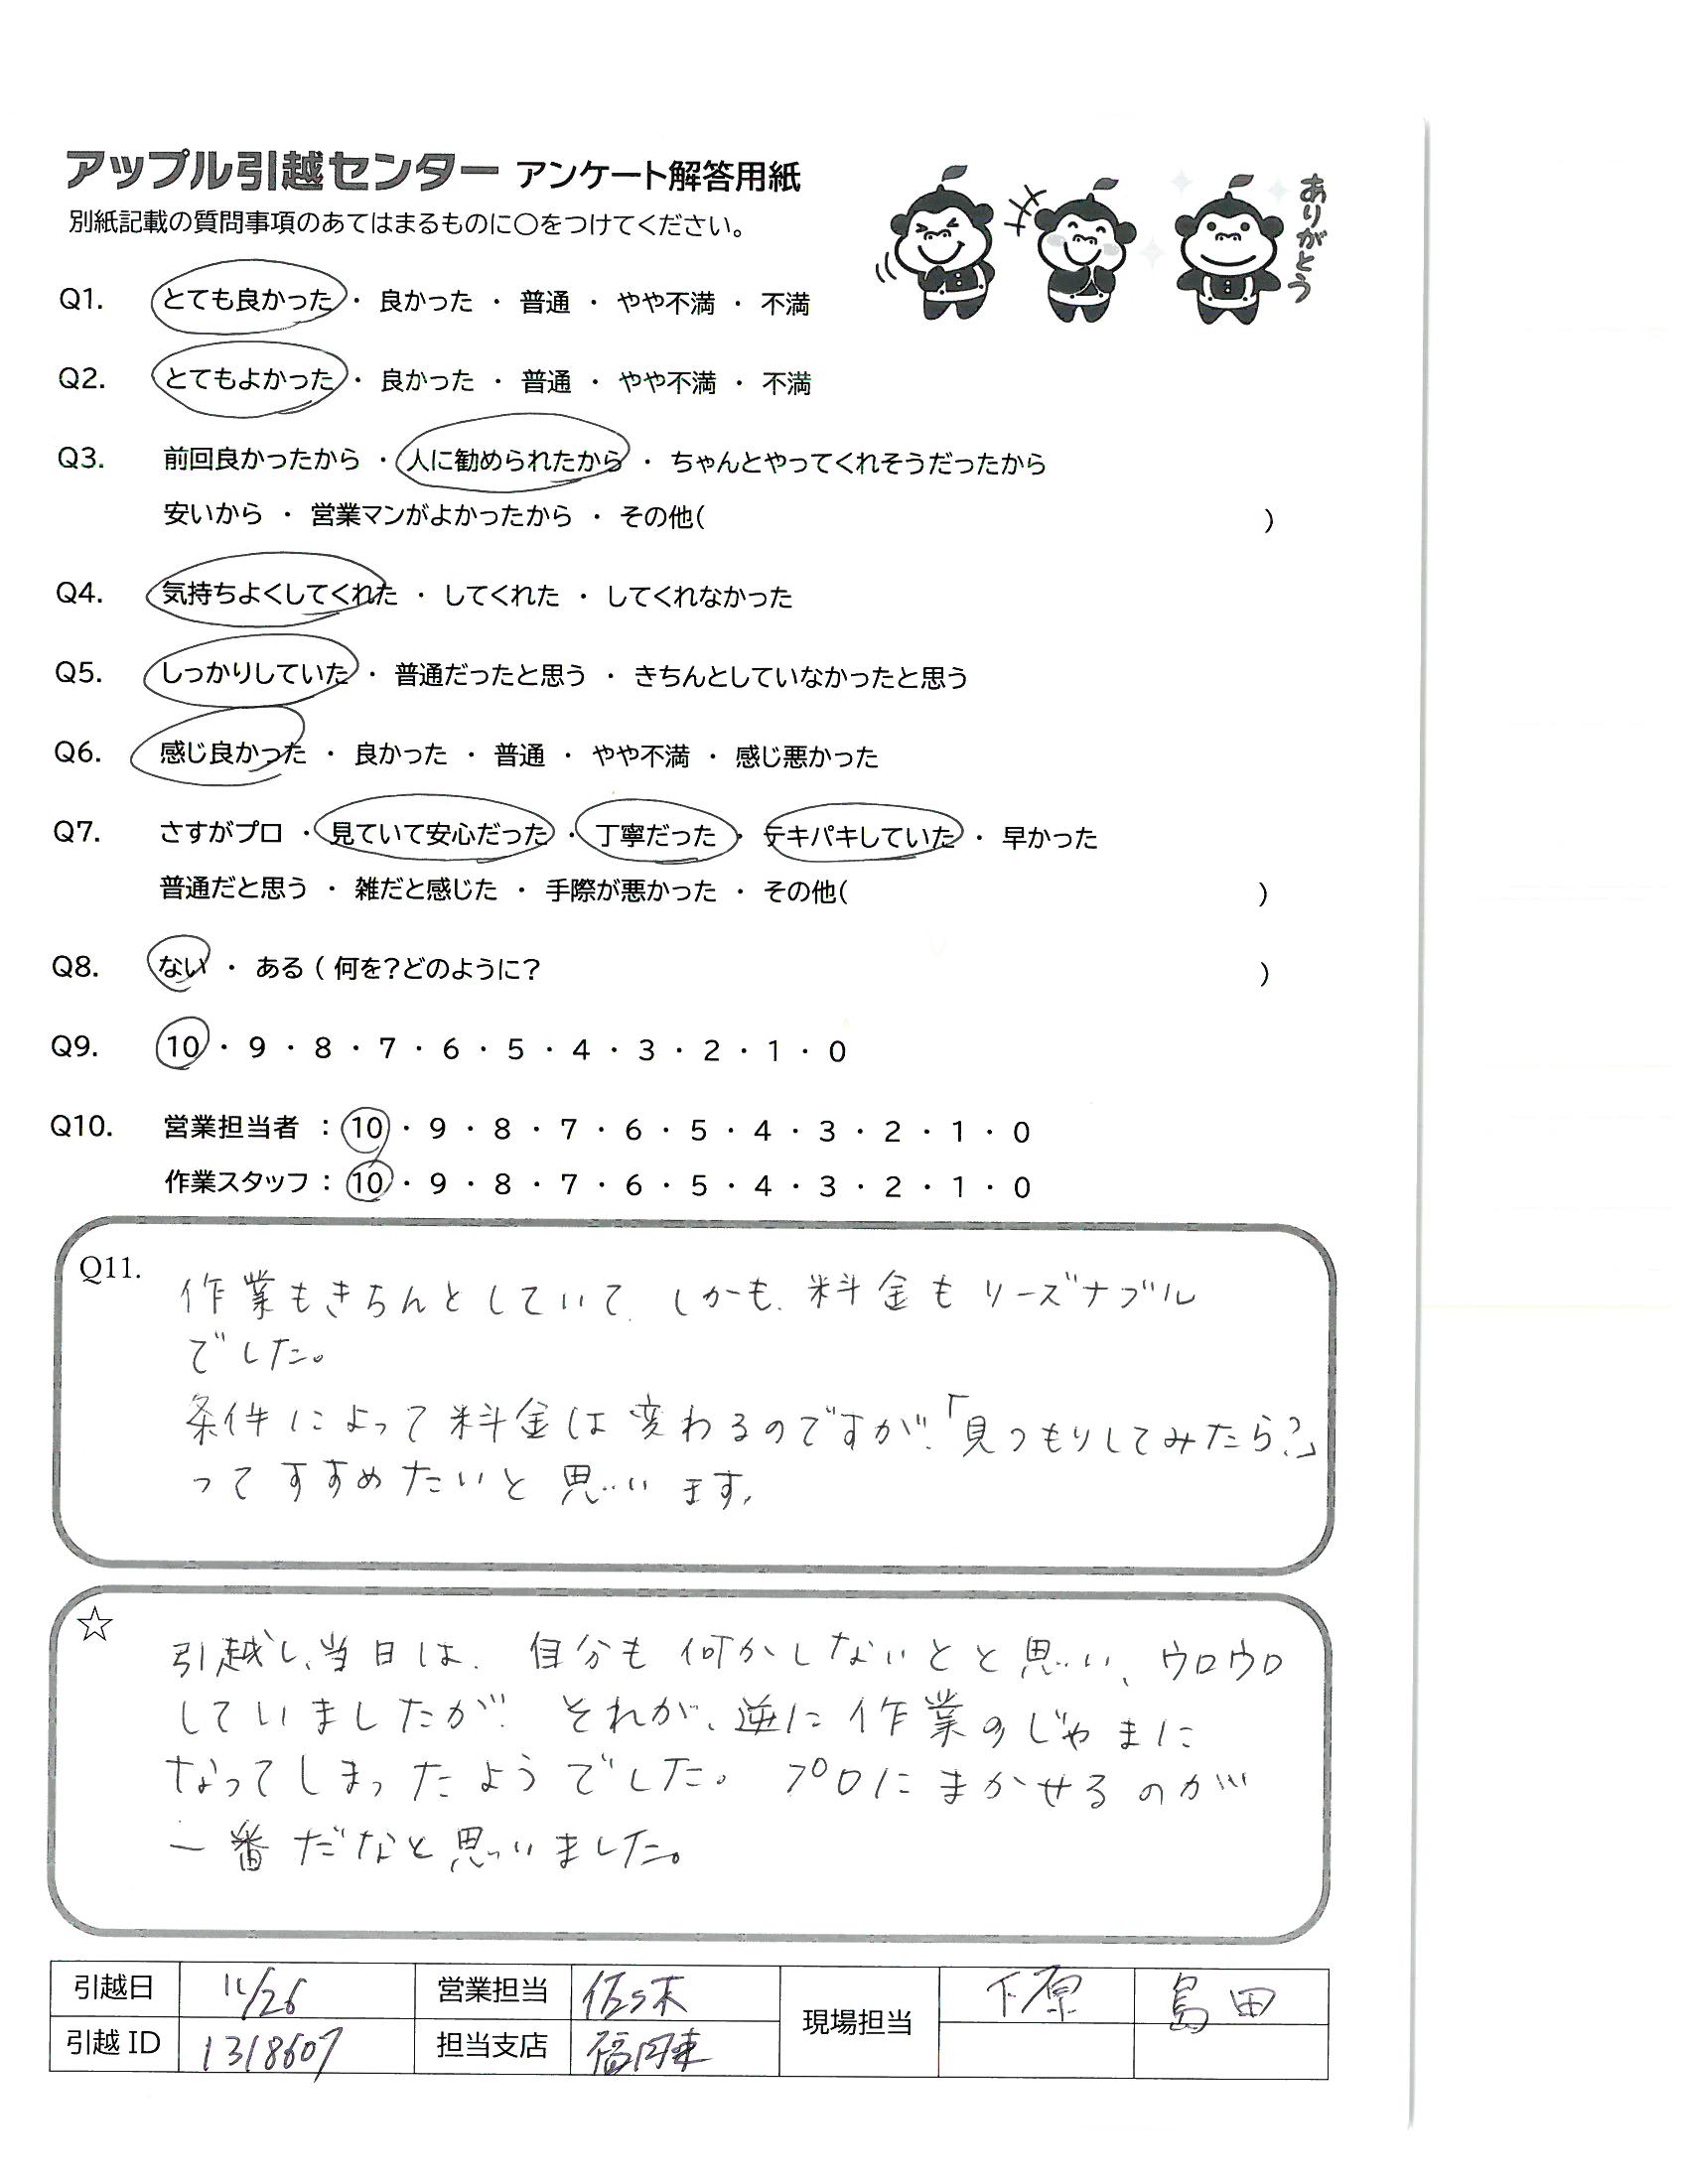 アップル引越センター アンケート解答用紙
ありがとう
別紙記載の質問事項のあてはまるものに〇をつけてください。
Q1. とても良かった ・ 良かった ・ 普通 ・ やや不満 ・ 不満
Q2. とてもよかった ・ 良かった ・ 普通 ・ やや不満 ・ 不満
Q3. 前回良かったから ・ 人に勧められたから ・ ちゃんとやってくれそうだったから
安いから ・ 営業マンがよかったから ・ その他( )
Q4. 気持ちよくしてくれた ・ してくれた ・ してくれなかった
Q5. しっかりしていた ・ 普通だったと思う ・ きちんとしていなかったと思う
Q6. 感じ良かった ・ 良かった ・ 普通 ・ やや不満 ・ 感じ悪かった
Q7. さすがプロ ・ 見ていて安心だった ・ 丁寧だった ・ テキパキしていた ・ 早かった
普通だと思う ・ 雑だと感じた ・ 手際が悪かった ・ その他( )
Q8. ない ・ ある ( 何を?どのように? )
Q9. 10 ・ 9 ・ 8 ・ 7 ・ 6 ・ 5 ・ 4 ・ 3 ・ 2 ・ 1 ・ 0
Q10. 営業担当者 : 10 ・ 9 ・ 8 ・ 7 ・ 6 ・ 5 ・ 4 ・ 3 ・ 2 ・ 1 ・ 0
作業スタッフ : 10 ・ 9 ・ 8 ・ 7 ・ 6 ・ 5 ・ 4 ・ 3 ・ 2 ・ 1 ・ 0
Q11.
作業もきちんとしていて、しかも、料金もリーズナブル
でした。
条件によって料金は変わるのですが、「見つもりしてみたら?」
ってすすめたいと思います。
☆
引越し、当日は、自分も何かしないとと思い、ウロウロ
していましたが、それが、逆に作業のじゃまに
なってしまったようでした。プロにまかせるのが
一番だなと思いました。
引越日 11/26 営業担当 佐々木 現場担当 下原 島田
引越ID 1318607 担当支店 福岡東